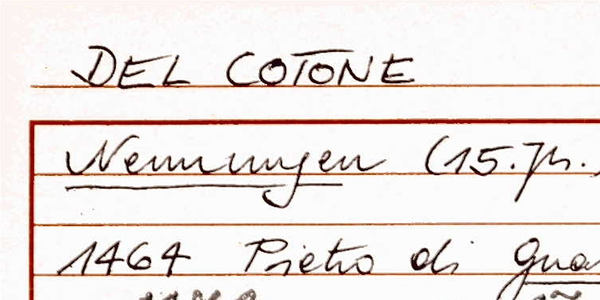 DEL COTONE
Nennungen (15. Jh.)
1464 Pietro di